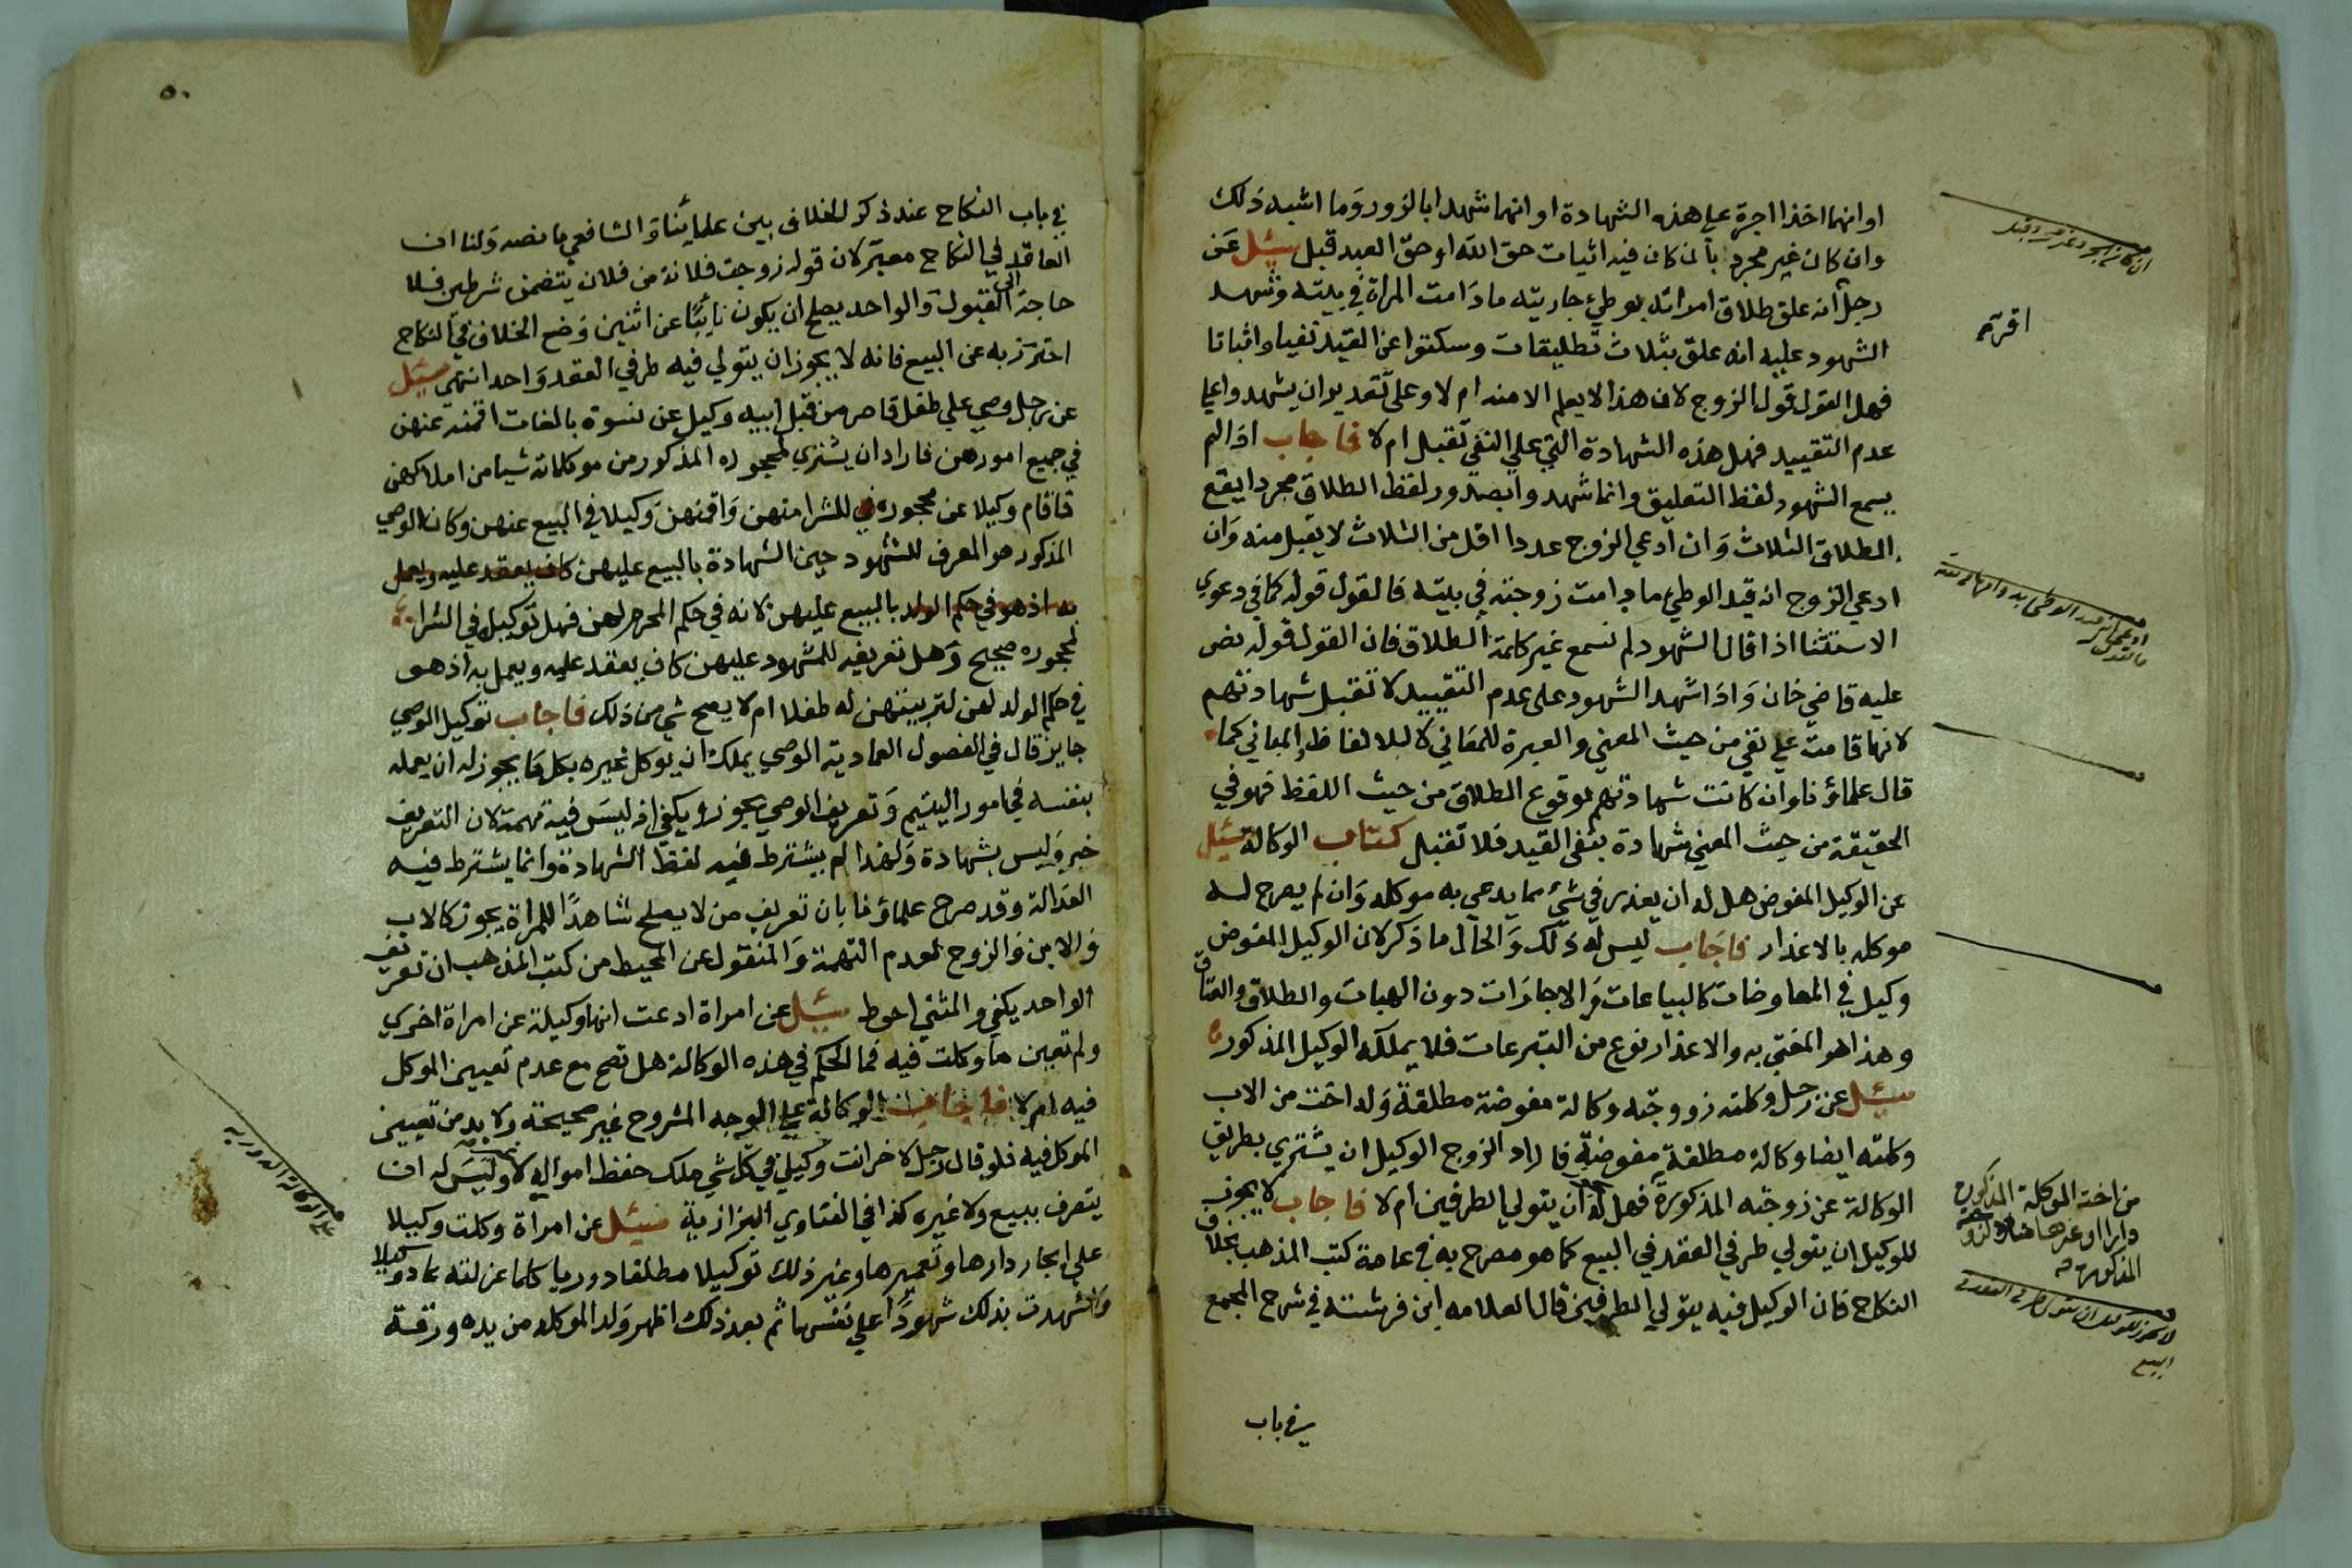 او انهما اخذا اجرة على هذه الشهادة او انهما شهدا بالزور وما اشبه ذلك
وان كان غير مجرد بان كان فيه اثبات حق الله او حق العبد قبل سئل عن
رجل انه علق طلاق امراته بوطئ جاريته مادامت المراة في بيته وشهد
الشهود عليه انه علق بثلاث تطليقات وسكتوا عن القيد نفيا واثباتا
فهل القول قول الزوج لان هذا لا يعلم الا منه ام لا وعلى تقدير ان يشهدوا على
عدم التقييد فهل هذه الشهادة التي على النفي تقبل ام لا فاجاب اذا لم
يسمع الشهود لفظ التعليق وانما شهدوا بصدور لفظ الطلاق مجردا يقع
الطلاق الثلاث وان ادعي الزوج عددا اقل من الثلاث لا يقبل منه وان
ادعي الزوج انه قيد الوطئ مادامت زوجته في بيته فالقول قوله كما في دعوي
الاستثنا اذا قال الشهود لم نسمع غير كلمة الطلاق فان القول قوله نص
عليه قاضي خان واذا شهد الشهود على عدم التقييد لا تقبل شهادتهم
لانها قامت على نفي من حيث المعني والعبرة للمعاني لا للالفاظ والمباني كما
قال علماؤنا وان كانت شهادتهم بوقوع الطلاق من حيث اللفظ فهو في
الحقيقة من حيث المعني شهادة بنفي القيد فلا تقبل كتاب الوكالة سئل
عن الوكيل المفوض هل له ان يعذر في شئ مما يدعي به موكله وان لم يصرح له
موكله بالاعذار فاجاب ليس له ذلك والحال ما ذكر لان الوكيل المفوض
وكيل في المعاوضات كالبياعات والاجارات دون الهبات والطلاق والعتاق
وهذا هو المفتي به والاعذار نوع من التبرعات فلا يملكه الوكيل المذكور
سئل عن رجل وكلته زووجته وكالة مفوضة مطلقة وله اخت من الاب
وكلته ايضا وكالة مطلقة مفوضة فاراد الزوج الوكيل ان يشتري بطريق
الوكالة عن زوجته المذكورة فهل له ان يتولي الطرفين ام لا فاجاب لا يجوز
للوكيل ان يتولي طرفي العقد في البيع كما هو مصرح به في عامة كتب المذهب بخلاف
النكاح فان الوكيل فيه يتولي الطرفين قال العلامه ابن فرشته في شرح المجمع
في باب
اقرته
من اخته الموكلة المذكورة
دارا او غيرها
المذكورة
لا يجوز للوكيل ان يتولى طرفي العقد في
البيع
٥٠
في باب النكاح عند ذكر الخلاف بين علمائنا والشافعي ما نصه ولنا ان
العاقد في النكاح معبر لان قوله زوجت فلانة من فلان يتضمن شرطين فلا
حاجة الى القبول والواحد يصلح ان يكون نائبًا عن اثنين وضع الخلاف في النكاح
احترز به عن البيع فانه لا يجوز ان يتولي فيه طرفي العقد واحد انتهى سئل
عن رجل وصي على طفل قاصر من قبل ابيه وكيل عن نسوة بالغات اقمنه عنهن
في جميع امورهن فاراد ان يشتري لمحجوره المذكور من موكلاته شيا من املاكهن
فاقام وكيلا عن محجوره في للشرا منهن واقمنهن وكيلا في البيع عنهن وكان الوصي
المذكور هو المعرف للشهود حين الشهادة بالبيع عليهن كاف يعقد عليه ويعمل
به اذ هو في حكم الولد بالبيع عليهن لانه في حكم المحرم لهن فهل توكيله في الشرا
لمحجوره صحيح وهل تعريفه للشهود عليهن كاف يعقد عليه ويعمل به اذ هو
في حكم الولد لهن لتربيتهن له طفلا ام لا يصح شي من ذلك فاجاب توكيل الوصي
جايز قال في الفصول العمادية الوصي يملك ان يوكل غيره بكل ما يجوز له ان يعمله
بنفسه في امور اليتيم وتعريف الوصي يجوز ويكفي اذ ليس فيه تهمة لان التعريف
خبر وليس بشهادة ولهذا لم يشترط فيه لفظ الشهادة وانما يشترط فيه
العدالة وقد صرح علماؤنا بان تعريف من لا يصلح شاهدًا للمراة يجوز كالاب
والابن والزوج لعدم التهمة والمنقول عن المحيط من كتب المذهب ان تعريف
الواحد يكفي والمثني احوط سئل عن امراة ادعت انها وكيلة عن امراة اخري
ولم تعين ما وكلت فيه فما الحكم في هذه الوكالة هل تصح مع عدم تعيين الموكل
فيه ام لا فاجاب الوكالة على الوجه المشروح غير صحيحة ولا بد من تعيين
الموكل فيه فلو قال رجل لاخر انت وكيلي في كل شي ملك حفظ امواله لا وليس له ان
يتصرف ببيع ولا غيره كذا في الفتاوي البزازية سئل عن امراة وكلت وكيلا
على ايجار دارها وتعميرها وغير ذلك توكيلا مطلقا دوريا كلما عزلته عاد وكيلا
واشهدت بذلك شهودًا على نفسها ثم بعد ذلك اظهر ولد الموكله من يده ورقة
الوكالة الدورية